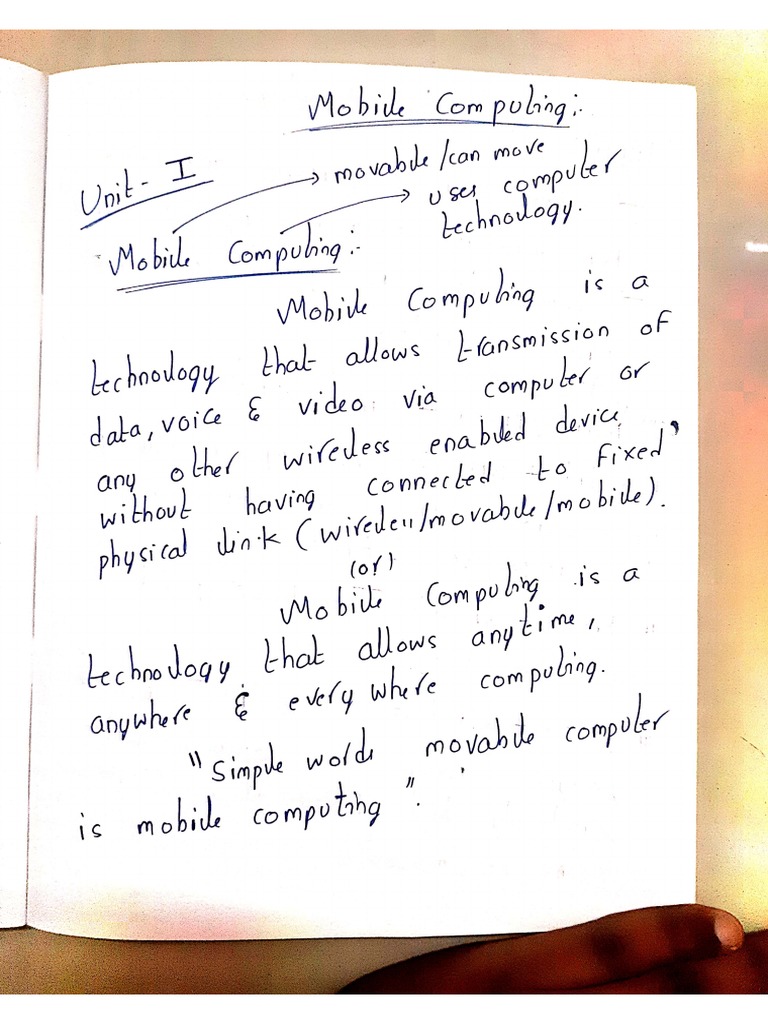 Mobile Computing:-
Unit - I
movable/can move
uses computer
technology.
Mobile Computing:-
Mobile Computing is a
technology that allows transmission of
data, voice & video via computer or
any other wireless enabled device
without having connected to fixed
physical link (wireless/movable/mobile).
(or)
Mobile Computing is a
technology that allows anytime,
anywhere & everywhere computing.
"Simple words movable computer
is mobile computing".